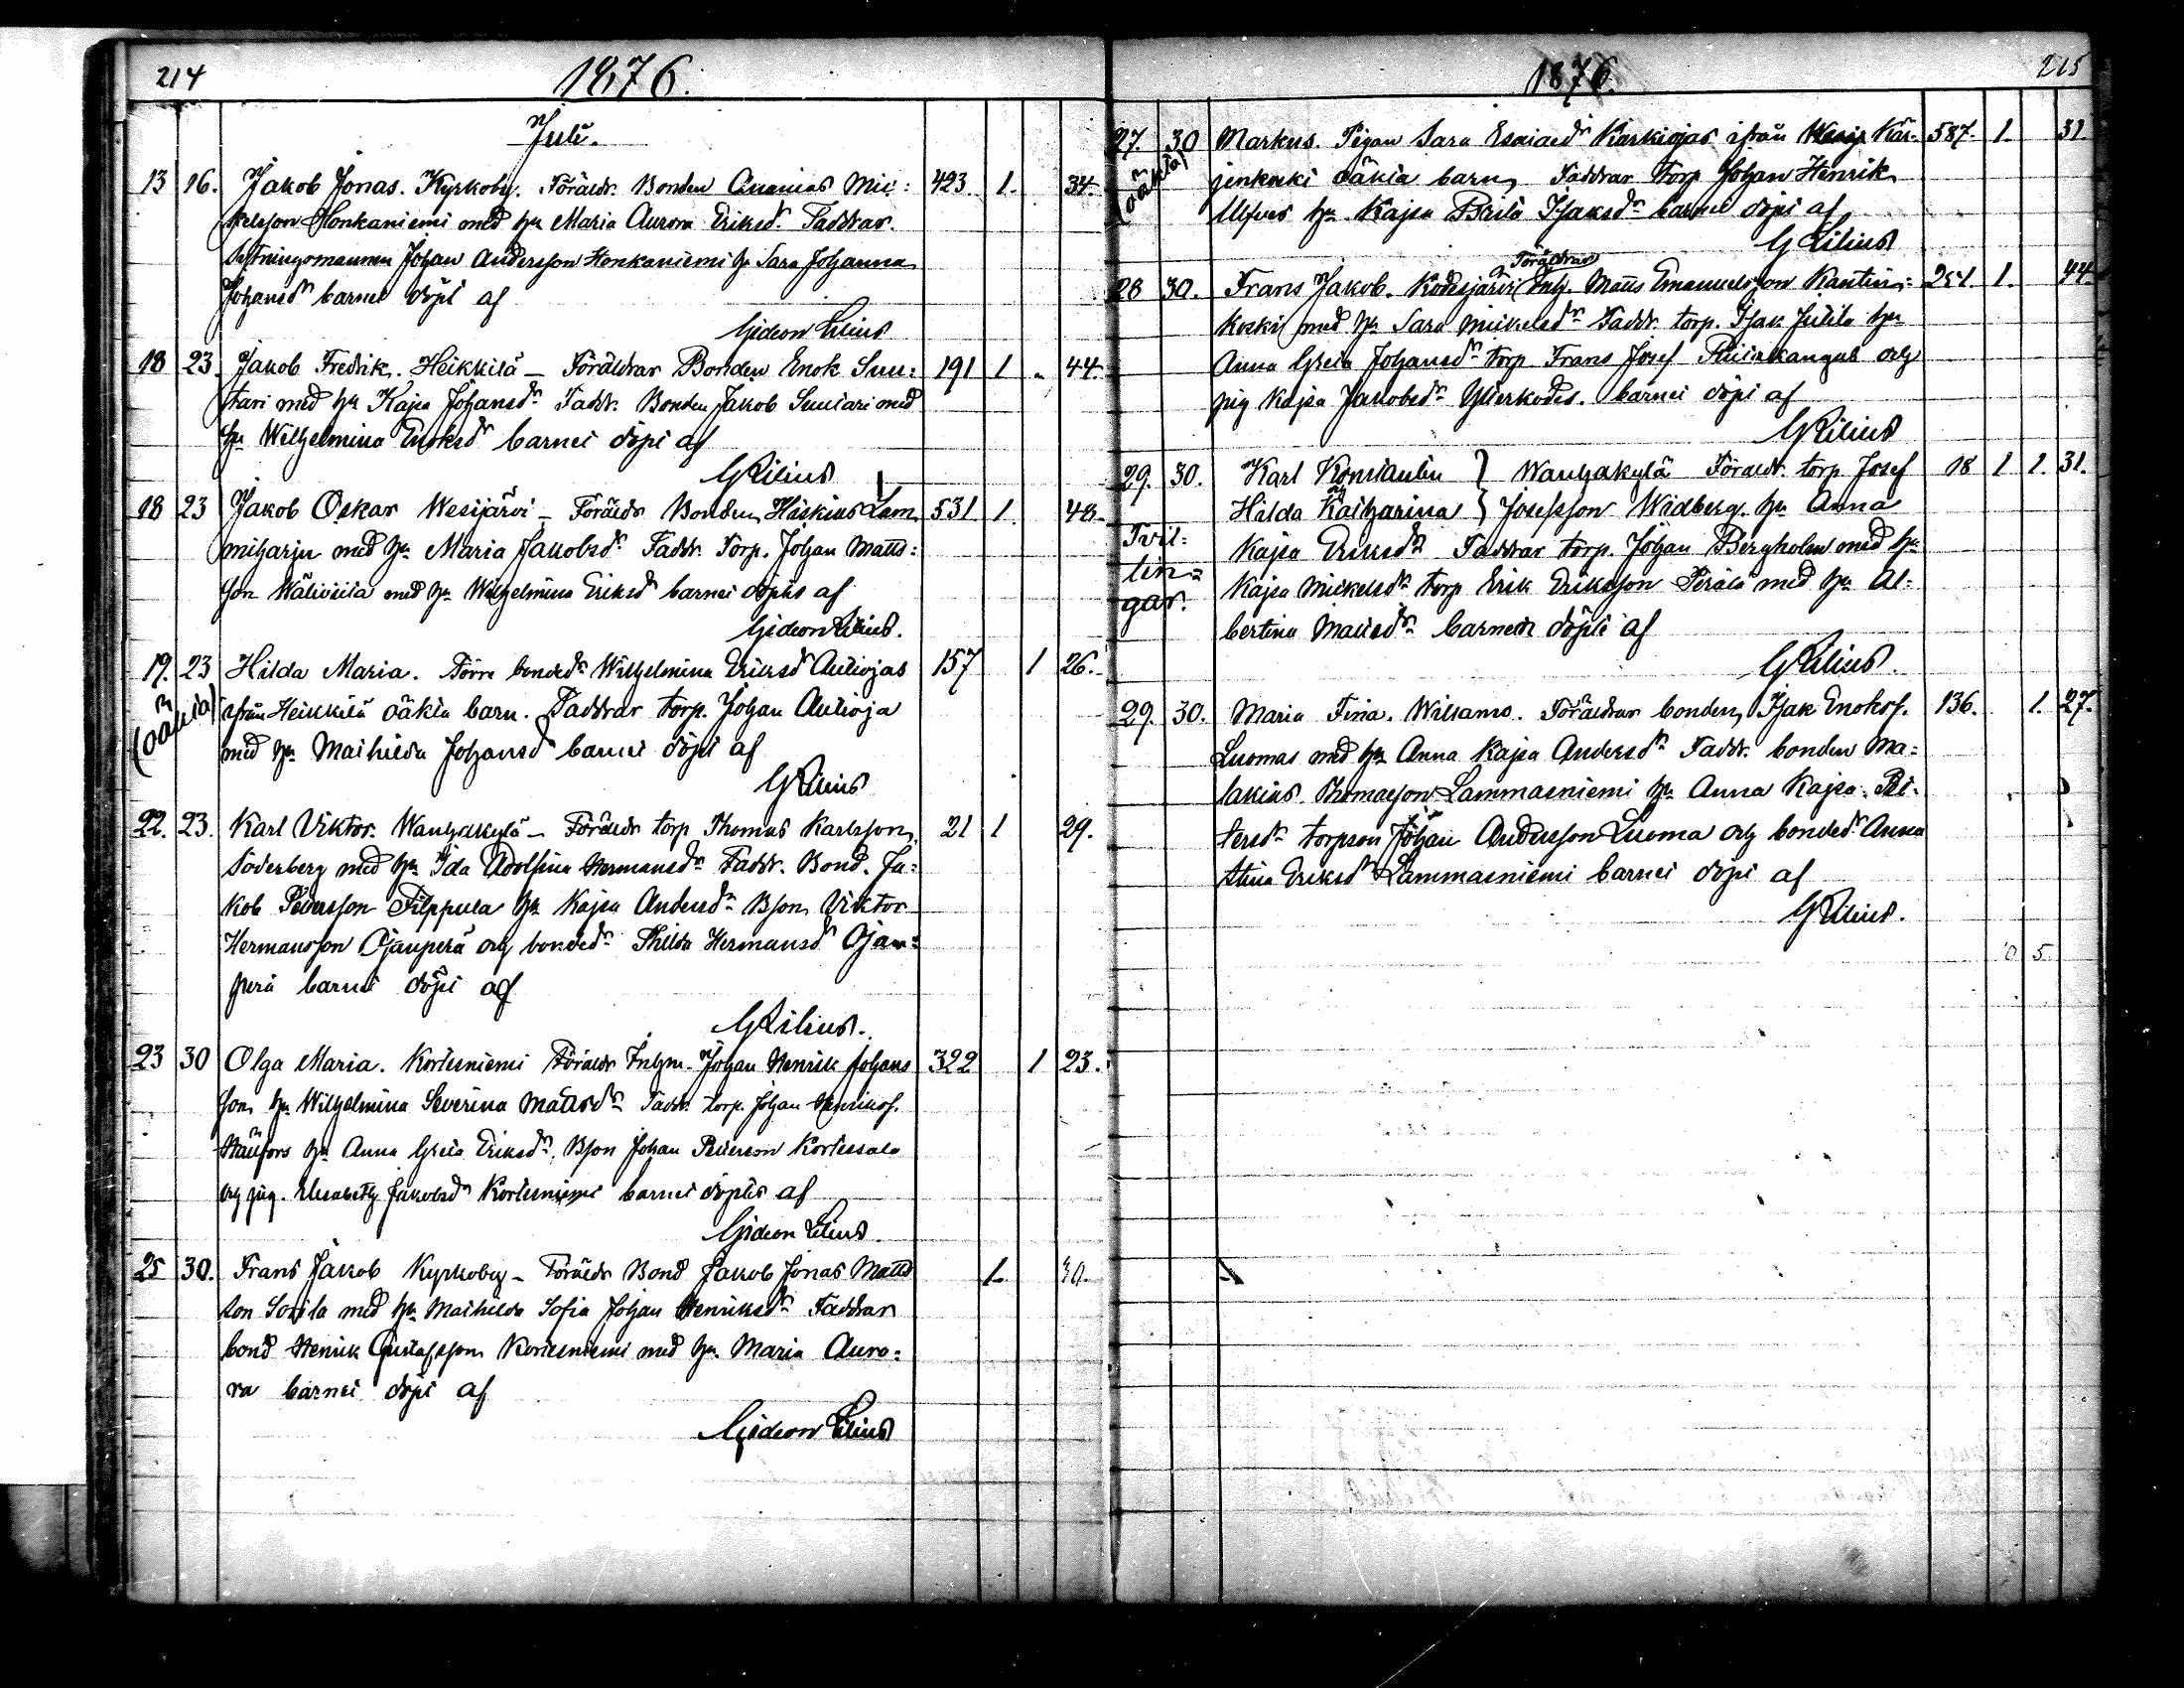 214
1876.
Juli.
13 16. Jakob Jonas. Kyrkoby. Föräldr. Bonden Ananias Mic= 423. 1. 34.
kelsson Honkaniemi med hu Maria Aurora Eriksdr. Faddrar.
Sytningsmannen Johan Andersson Honkaniemi h. Sara Johanna
Johansdr barnet döpt af
Gideon Lilius
18 23. Jakob Fredrik. Heikkilä – Föräldrar Bonden Enok Suu= 191 1 44.
tari med hu Kajsa Johansdr Faddr. Bonden Jakob Suutari med
hu Wilhelmina Enoksdr barnet döpt af
G Lilius
18 23 Jakob Oskar Wesijärvi – Föräldr Bonden Häskias Lam 531 1. 48.
miharju med hu Maria Jakobsdr Faddr. Torp. Johan Matts=
son Wäliviita med hu Wilhelmina Eriksdr barnet döptes af
Gideon Lilius.
19. 23 Hilda Maria. Förre bondedr Wilhelmina Eriksdr Autiojas 157 1 26.
(oäkta) ifrån Heikkilä oäkta barn. Faddrar torp. Johan Autioja
med hu Mathilda Johansdr barnet döpt af
G Lilius
22. 23. Karl Viktor. Wanhakylä – Föräldr torp Thomas Karlsson 21 1 29.
Söderberg med hu Ida Adolfina Hermansdr Faddr. Bond. Ja=
kob Petersson Filppula hu Kajsa Andersdr Bson Viktor
Hermansson Ojanperä och bondedr Thilda Hermansdr Ojan=
perä barnet döpt af
G Lilius.
23 30 Olga Maria. Kortesniemi Föräldr Inhm. Johan Henrik Johans 322 1 23.
son hu Wilhelmina Severina Mattsdr Faddr. torp. Johan Henrikss.
hu Anna Greta Eriksdr. Bson Johan Peterson Kortessalo
och pig. Elisabeth Jakobsdr Kortesniemi barnet döptes af
Gideon Lilius.
25 30. Frans Jakob Kyrkoby – Föräldr Bond Jakob Jonas Matts 1. 30.
son med hu Mathilda Sofia Johan Henriksdr Faddrar
bond Henrik Gustafsson Kortesniemi med hu. Maria Auro=
ra barnet döpt af
Gideon Lilius
1876.
215
27. 30 Markus. Pigan Sara Esaiaedr Karhiojas ifrån Kär= 587. 1. 31
(oäkta) jenkoski oäkta barn, Faddrar torp Johan Henrik
Ulfves hu Kajsa Brita Isaksdr barnet döpt af
G Lilius
Föräldrar
28 30. Frans Jakob. Kodesjärvi Inh. Matts Emanuelsson Kantin= 251. 1. 44.
koski med hu Sara Mickelsdr Faddr. torp. Isak Julila hu
Anna Greta Johansdr torp Frans Josef och
pig Kajsa Jakobsdr barnet döpt af
G Lilius
29. 30. Karl Konstantin } Wanhakylä Föräldr. torp Josef 18 1 1 31.
och
Hilda Katharina } Josefsson Widberg. hu Anna
Tvil= Kajsa Eriksdr Faddrar torp. Johan Bergholm med hu
lin= Kajsa Mickelsdr torp Erik Eriksson Perälä med hu Al=
gar. bertina Mattsdr barnen döpte af
G Lilius.
29. 30. Maria Fina. Wiltamo. Föräldrar bonden Isak Enokss. 136. 1. 27.
Luomas med hu Anna Kajsa Andersdr Faddr. bonden Ma=
lakias Thomasson Lammasniemi hu Anna Kajsa Pet=
tersdr torpson Johan Andersson Luoma och bondedr Anna
Stina Eriksdr Lammasniemi barnet döpt af
G Lilius.
5